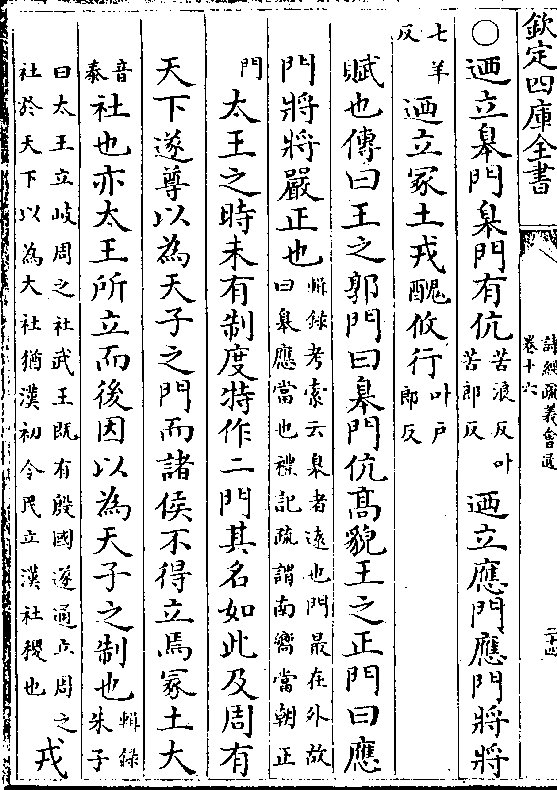 欽定四庫全書
詩經疏義會通
卷十六
二十四
○迺立臯門臯門有伉苦浪反叶苦郎反迺立應門應門將將
七羊反迺立冢土戎醜攸行叶戶郎反
賦也傳曰王之郭門曰臯門伉髙貌王之正門曰應
門將將嚴正也輯録考索云臯者逺也門最在外故曰臯應當也禮記疏謂南嚮當朝正
門太王之時未有制度特作二門其名如此及周有
天下遂尊以為天子之門而諸侯不得立焉冢土大
音泰社也亦太王所立而後因以為天子之制也輯録朱子
曰太王立岐周之社武王既有殷國遂通立周之社於天下以為大社猶漢初令民立漢社稷也戎